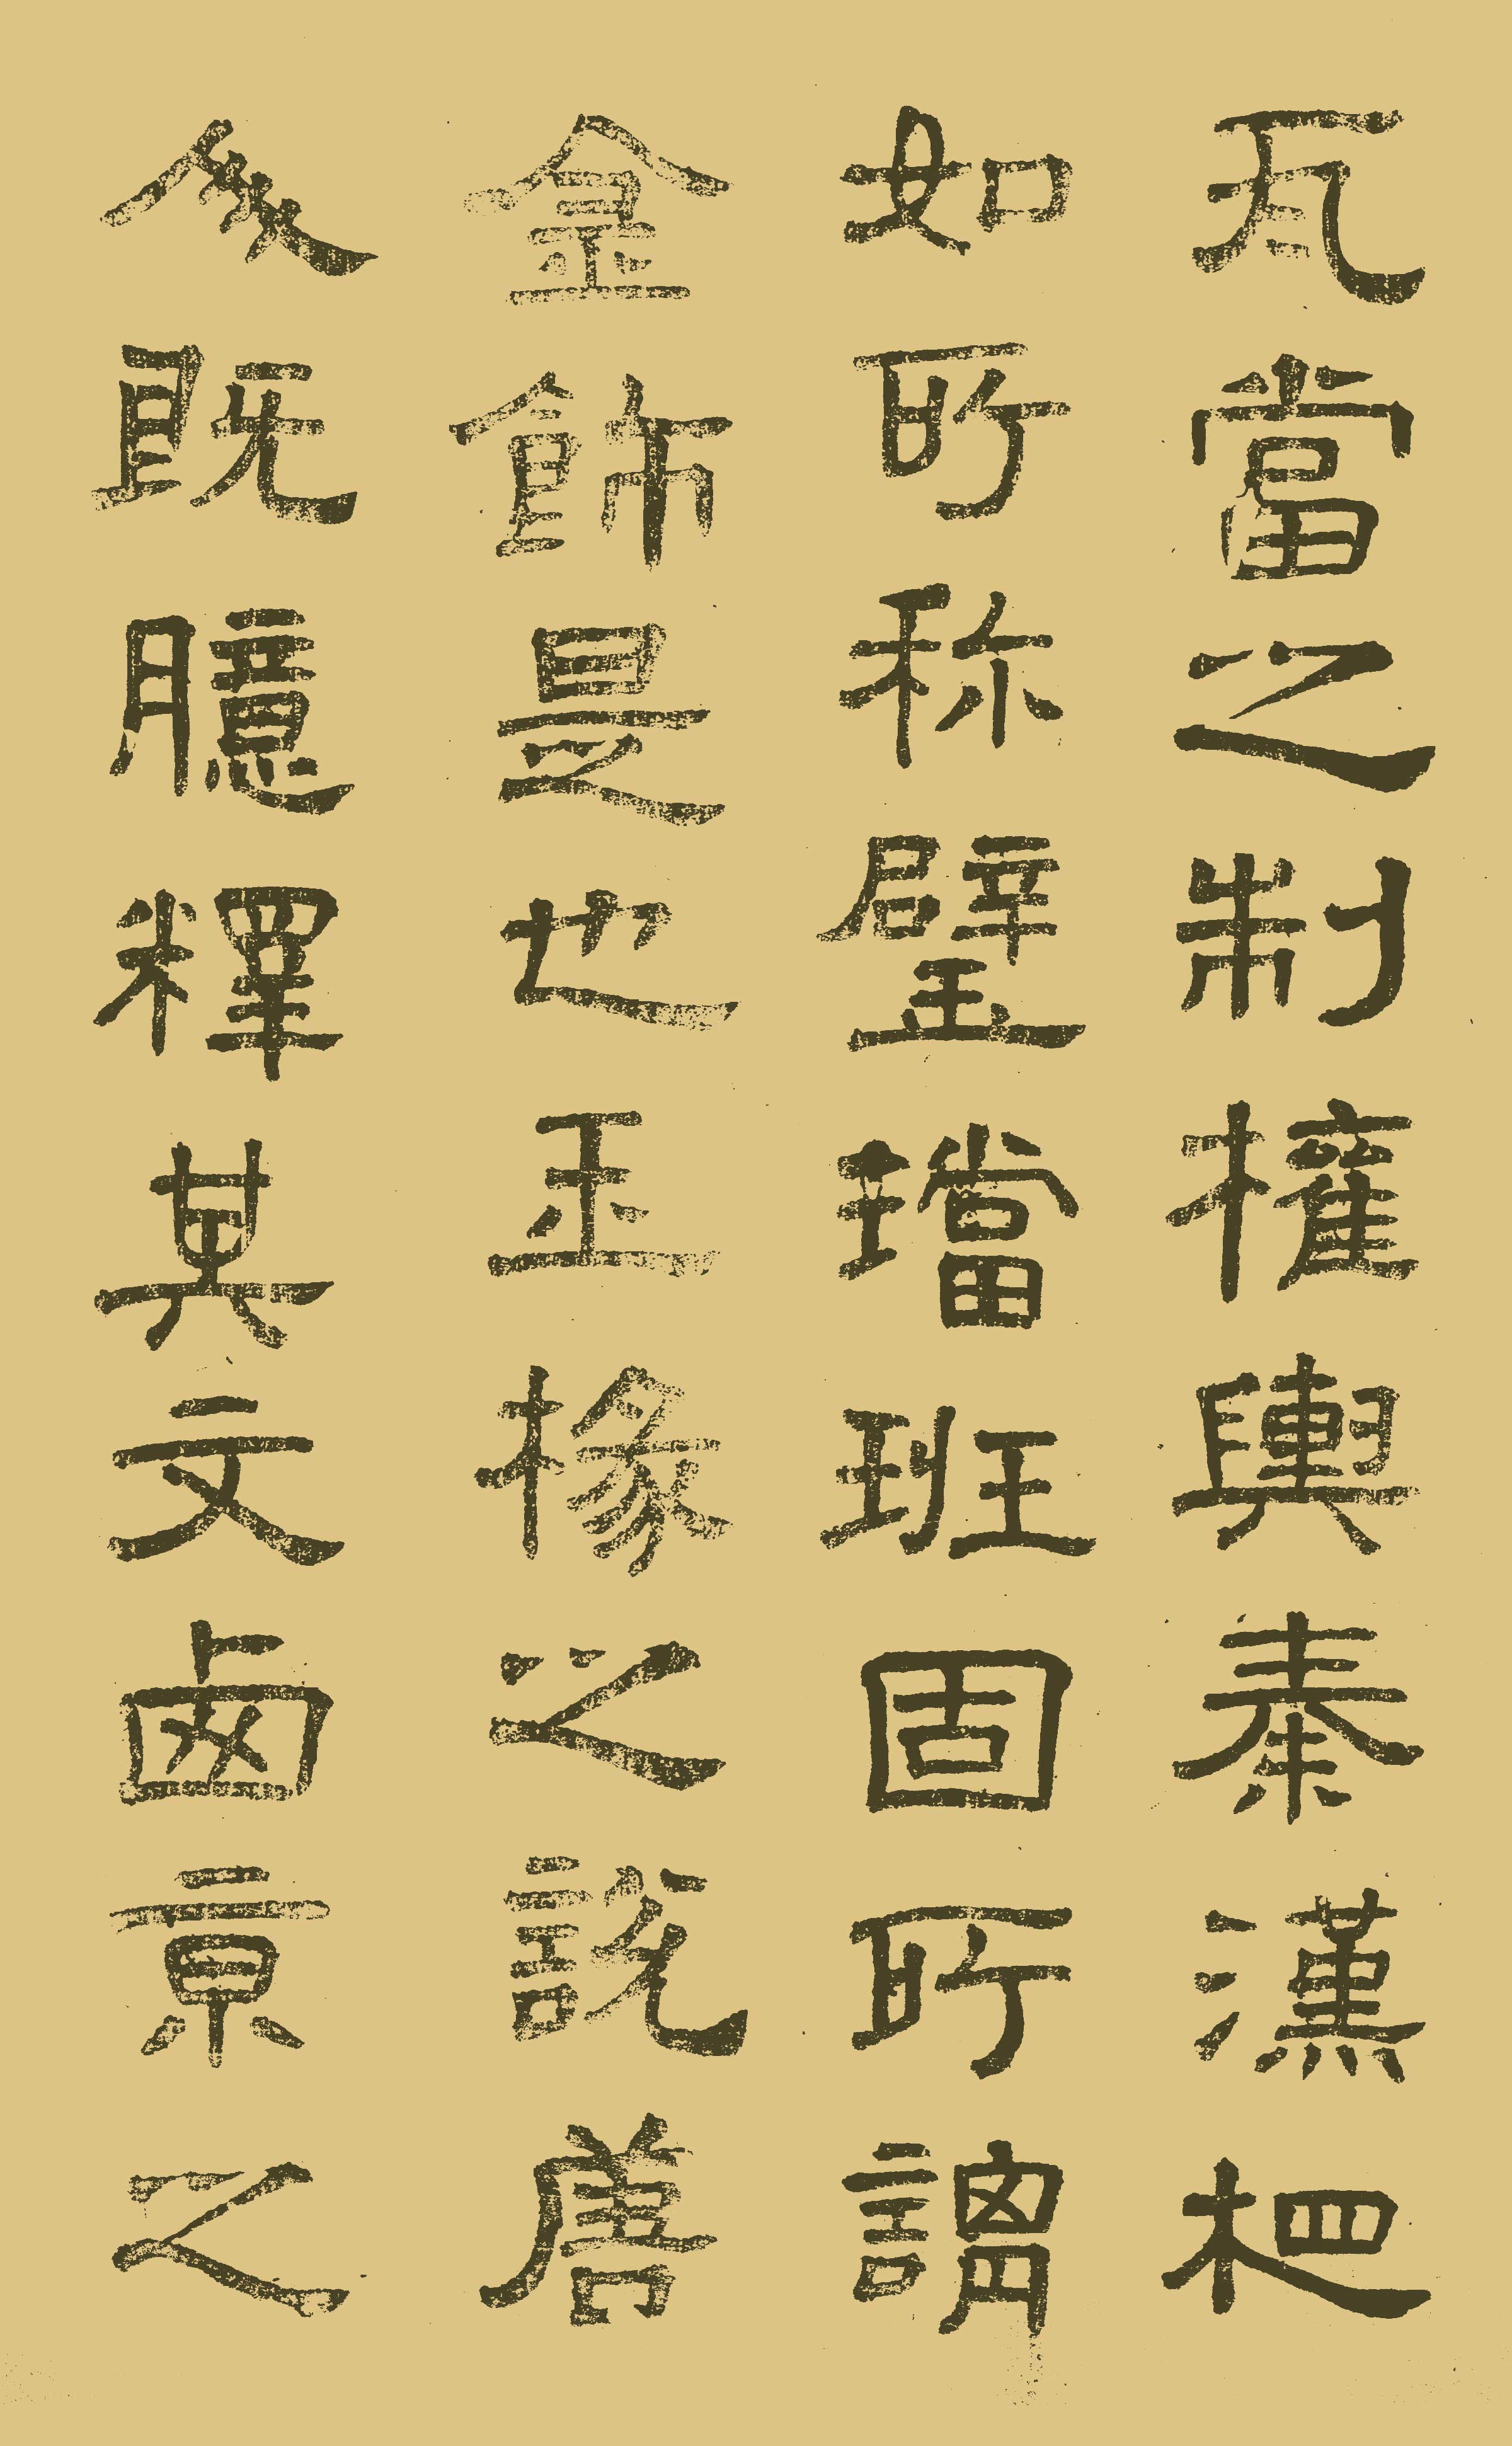 瓦當之制權輿秦漢相
如所称璧璫班固所謂
金飾是也玉椽之說唐
人既臆釋其文卤京之